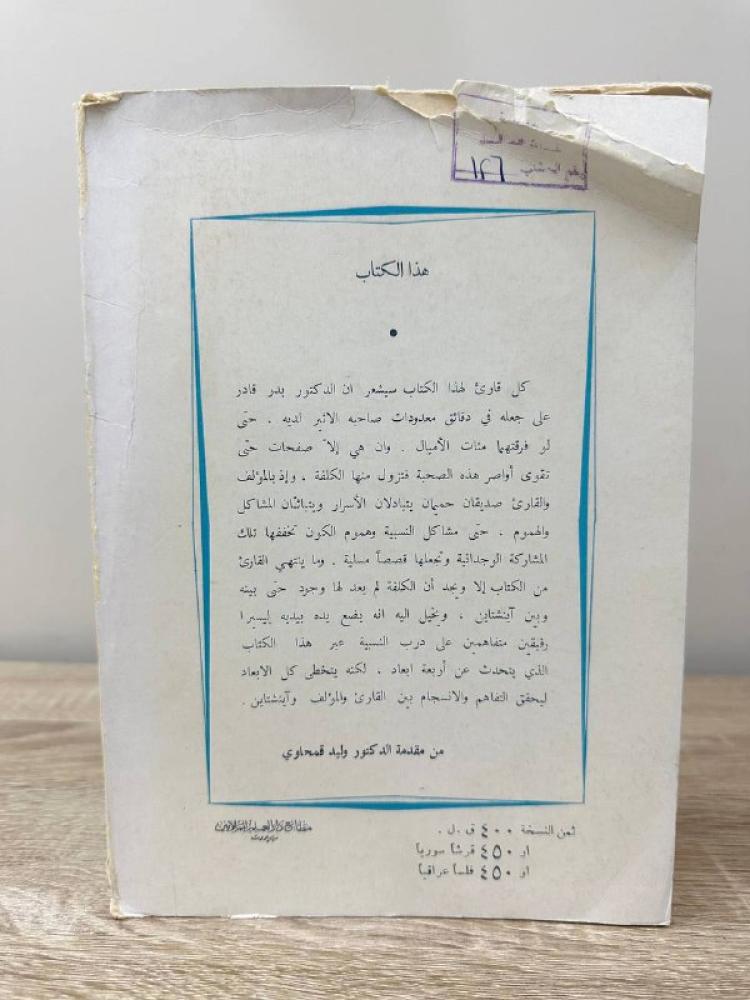 ١٢٦
هذا الكتاب
كل قارئ لهذا الكتاب سيشعر ان الدكتور بدر قادر
على جعله في دقائق معدودات صاحبه الاثير لديه . حتى
لو فرقتهما مئات الأميال . وان هي إلا صفحات حتى
تقوى أواصر هذه الصحبة فتزول منها الكلفة . وإذ بالمؤلف
والقارئ صديقان حميمان يتبادلان الأسرار ويتباثّان المشاكل
والهموم . حتى مشاكل النسبية وهموم الكون تخففها تلك
المشاركة الوجدانية وتجعلها قصصاً مسلية . وما ينتهي القارئ
من الكتاب إلا ويجد أن الكلفة لم يعد لها وجود حتى بينه
وبين آينشتاين ، ويخيل اليه انه يضع يده بيديه ليسيرا
رفيقين متفاهمين على درب النسبية عبر هذا الكتاب
الذي يتحدث عن أربعة ابعاد . لكنه يتخطى كل الابعاد
ليحقق التفاهم والانسجام بين القارئ والمؤلف وآينشتاين .
من مقدمة الدكتور وليد قمحاوي
ثمن النسخة ٤٠٠ ق . ل .
او ٤٥٠ قرشا سوريا
او ٤٥٠ فلسا عراقيا
مطابع دار العلم للملايين